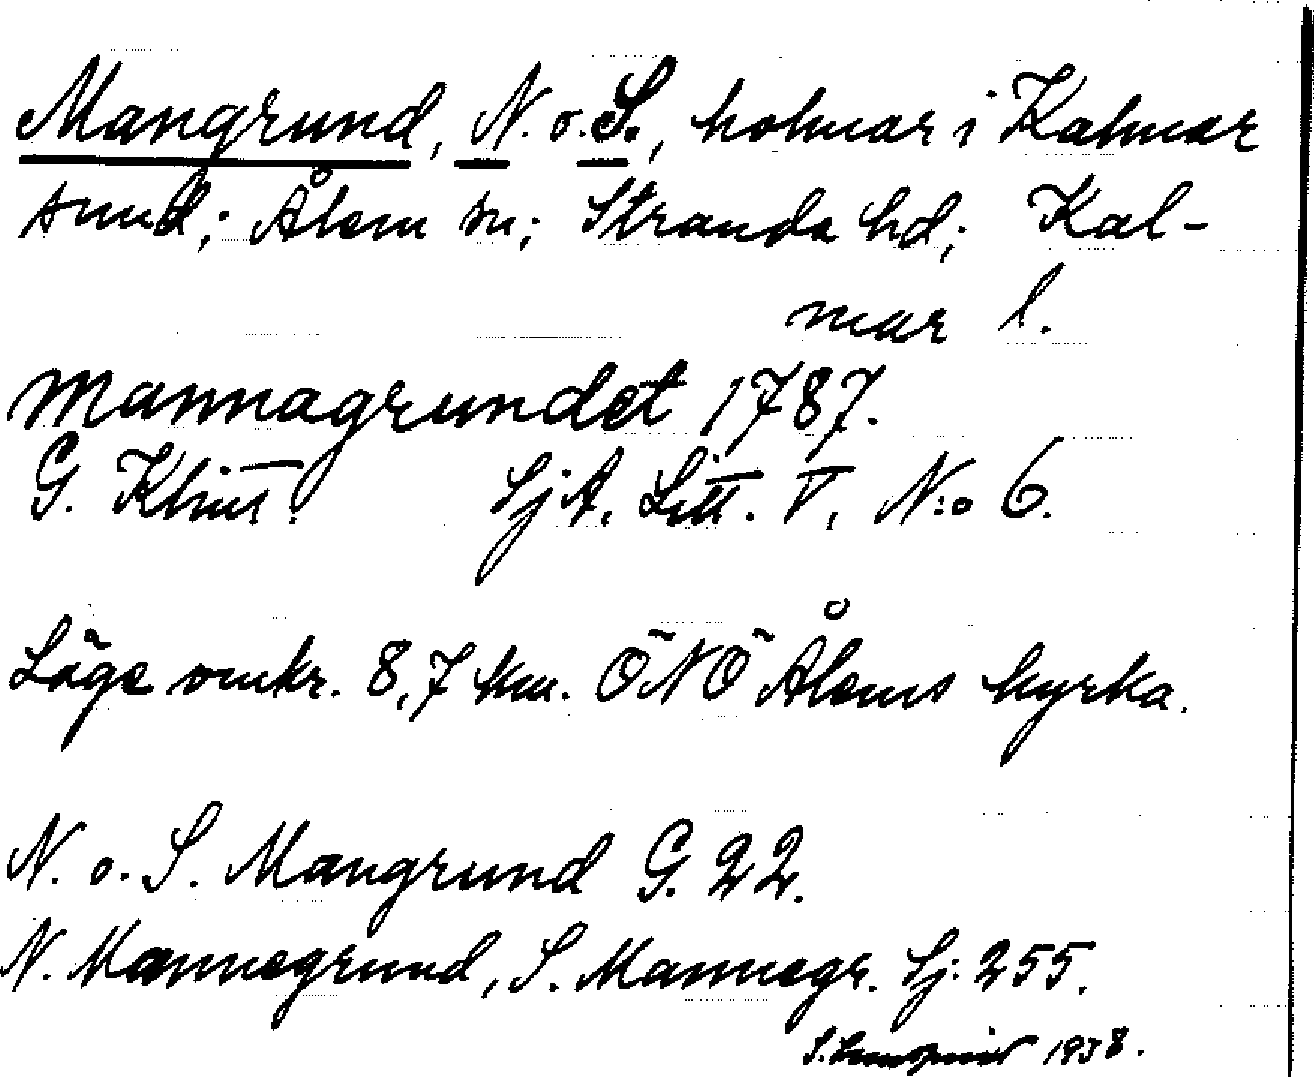 Mangrund, N. o. S., holmar i Kalmar
sund; Ålem sn; Stranda hd; Kal-
mar l.
Mannagrundet 1787.
G. Klint. SjA. Litt. V, N:o 6.
Läge omkr. 8,7 km. ÖNÖ Ålems kyrka.
N. o. S. Mangrund G. 22.
N. Mannegrund, S. Mannegr. Sj: 255.
1938.